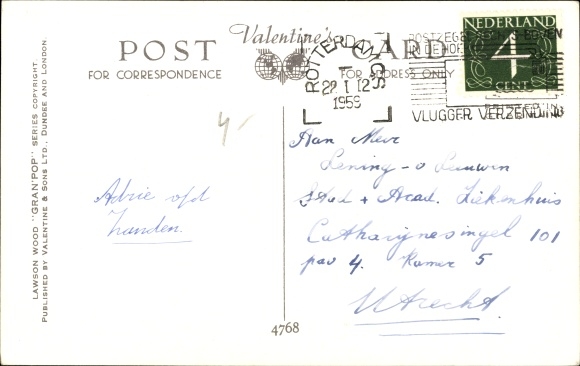 Valentine's
POST CARD
FOR CORRESPONDENCE
FOR ADDRESS ONLY
LAWSON WOOD "GRAN'POP" SERIES COPYRIGHT.
PUBLISHED BY VALENTINE & SONS LTD., DUNDEE AND LONDON.
ROTTERDAM CS
1956
NEDERLAND
4
CENT
VLUGGER VERZENDING
4-
Adrie v/d
Zanden.
Aan Mevr
Stad + Acad. Ziekenhuis
Catharijnesingel 101
pav 4. Kamer 5
Utrecht.
4768